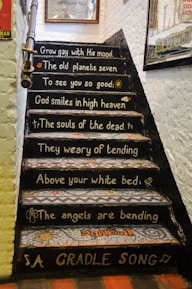 A CRADLE SONG
The angels are bending
Above your white bed;
They weary of tending
The souls of the dead.
God smiles in high heaven
To see you so good;
The old planets seven
Grow gay with His mood